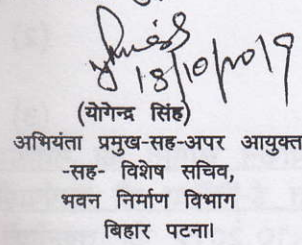 18/10/2019
(योगेन्द्र सिंह)
अभियंता प्रमुख-सह-अपर आयुक्त
-सह- विशेष सचिव,
भवन निर्माण विभाग
बिहार पटना।